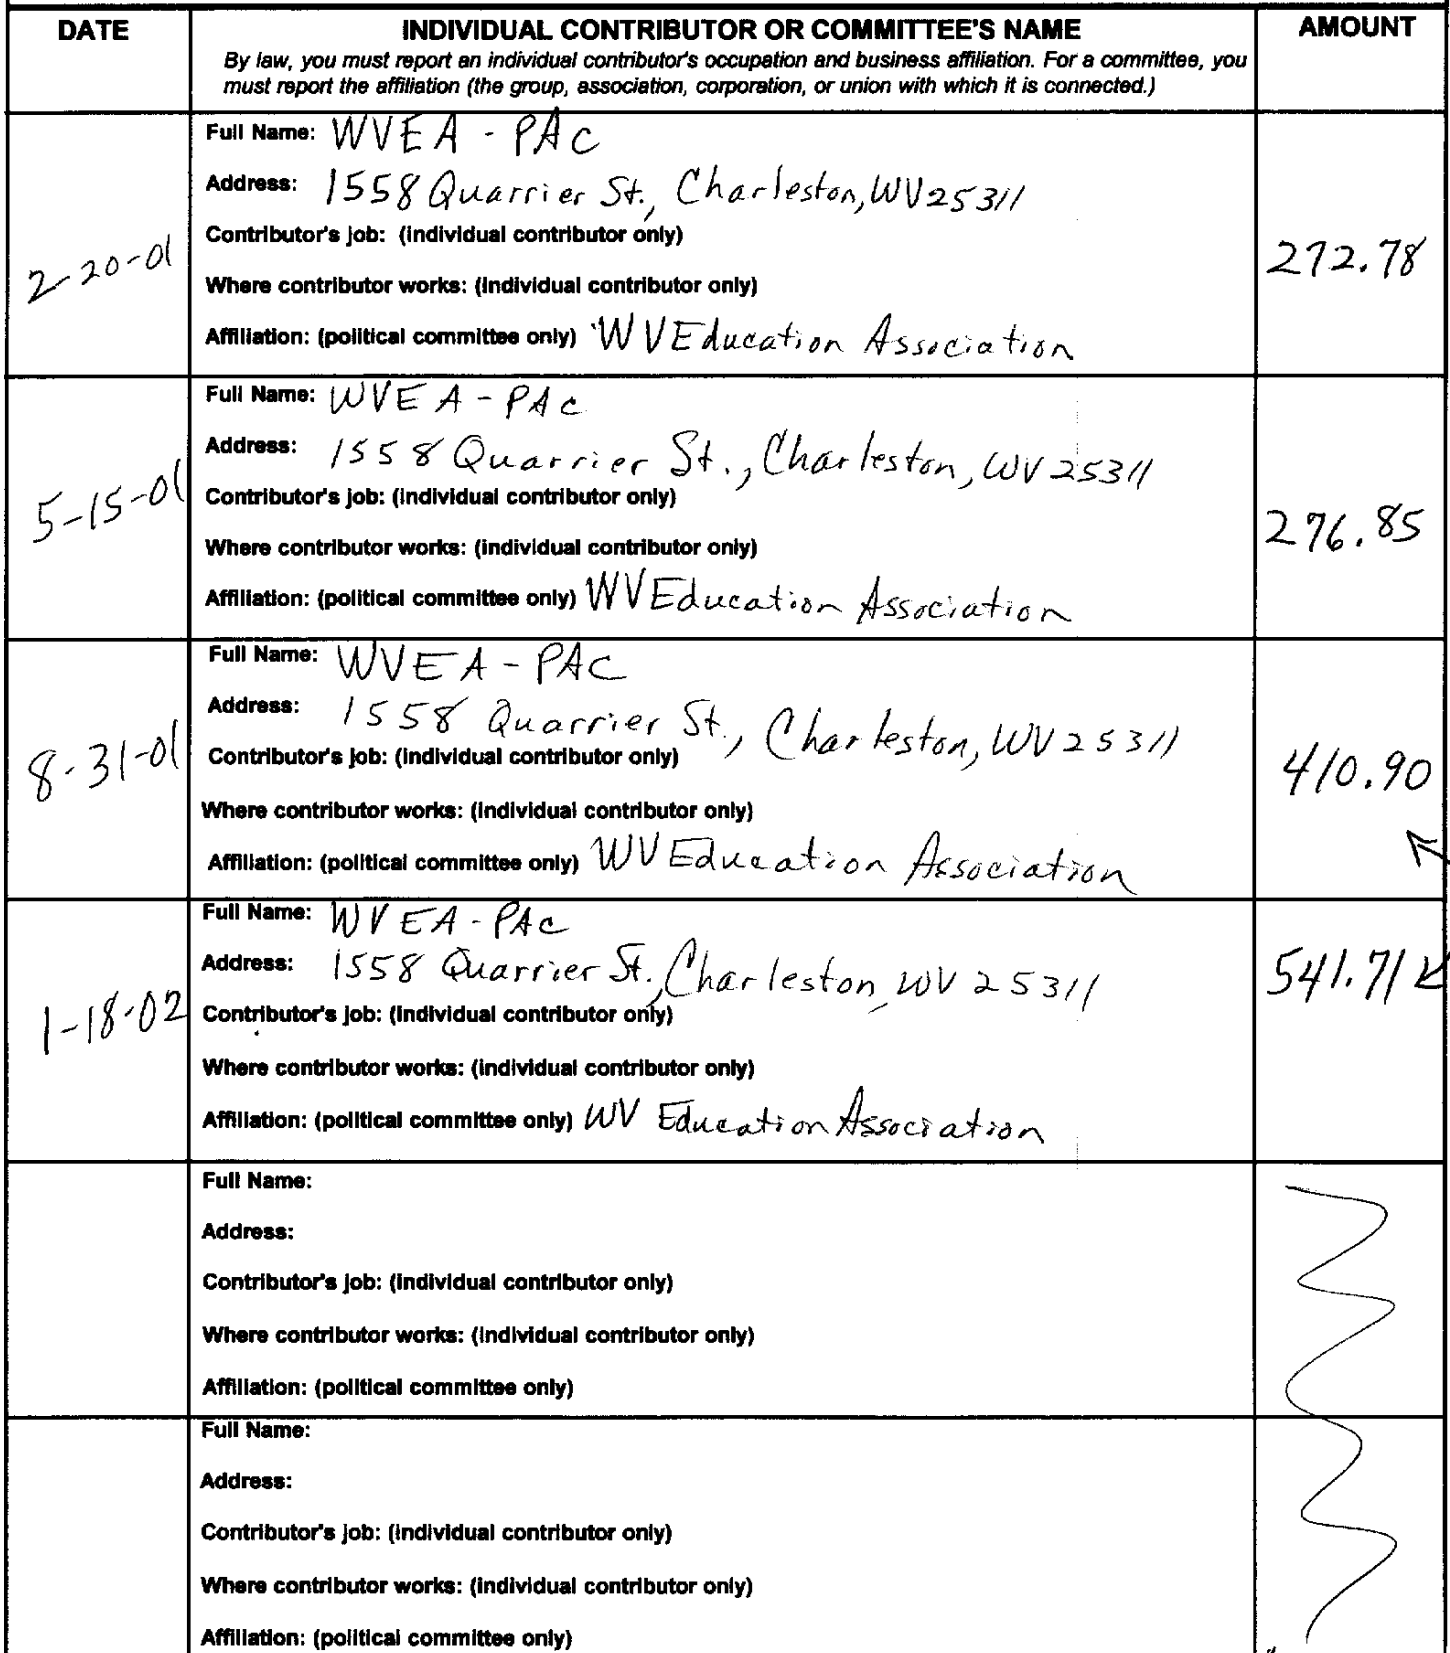 DATE INDIVIDUAL CONTRIBUTOR OR COMMITTEE'S NAME AMOUNT
By law, you must report an individual contributor's occupation and business affiliation. For a committee, you
must report the affiliation (the group, association, corporation, or union with which it is connected.)
Full Name: WVEA - PAC
Address: 1558 Quarrier St., Charleston, WV 25311
Contributor's job: (individual contributor only)
2-20-01 272.78
Where contributor works: (individual contributor only)
Affiliation: (political committee only) WV Education Association
Full Name: WVEA - PAC
Address: 1558 Quarrier St., Charleston, WV 25311
Contributor's job: (individual contributor only)
5-15-01 276.85
Where contributor works: (individual contributor only)
Affiliation: (political committee only) WV Education Association
Full Name: WVEA - PAC
Address: 1558 Quarrier St., Charleston, WV 25311
Contributor's job: (individual contributor only)
8-31-01 410.90
Where contributor works: (individual contributor only)
Affiliation: (political committee only) WV Education Association
Full Name: WVEA - PAC
Address: 1558 Quarrier St., Charleston, WV 25311 541.71
1-18-02 Contributor's job: (individual contributor only)
Where contributor works: (individual contributor only)
Affiliation: (political committee only) WV Education Association
Full Name:
Address:
Contributor's job: (individual contributor only)
Where contributor works: (individual contributor only)
Affiliation: (political committee only)
Full Name:
Address:
Contributor's job: (individual contributor only)
Where contributor works: (individual contributor only)
Affiliation: (political committee only)